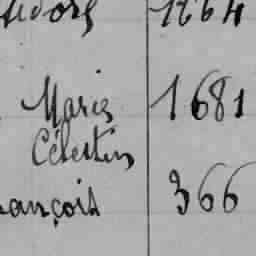 1264
Maria 1681
Célestin
ançois 366